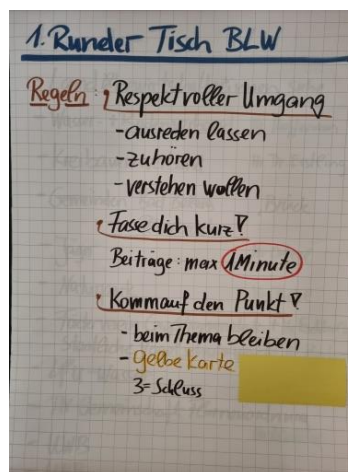 1. Runder Tisch BLW
Regeln: Respektvoller Umgang
-ausreden lassen
-zuhören
-verstehen wollen
Fasse dich kurz!
Beiträge: max 1 Minute
Komm auf den Punkt!
- beim Thema bleiben
- gelbe Karte
3 = Schluss